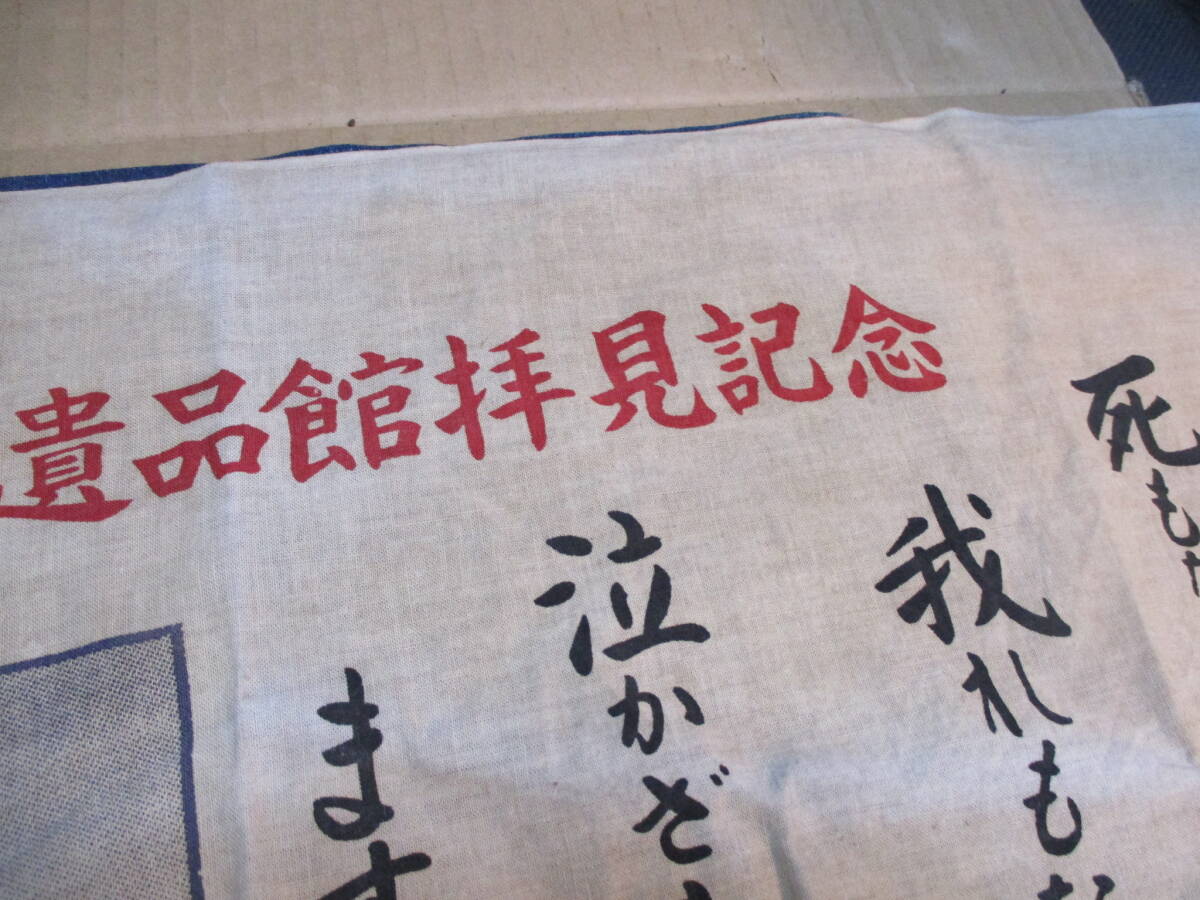 遺品館拝見記念
死も
我れも
泣かざ
ます